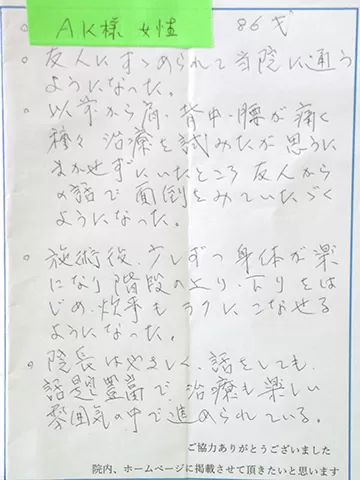 AK様 女性 86才
。友人にすゝめられて当院に通う
ようになった。
。以前から肩・背中・腰が痛く
種々治療を試みたが思うに
まかせずにいたところ友人から
の話で面倒をみていたゞく
ようになった。
。施術後、少しずつ身体が楽
になり階段の上り・下りをは
じめ、炊事もラクにこなせる
ようになった。
。院長はやさしく、話をしても
話題豊富で、治療も楽しい
雰囲気の中で進められている。
ご協力ありがとうございました
院内、ホームページに掲載させて頂きたいと思います